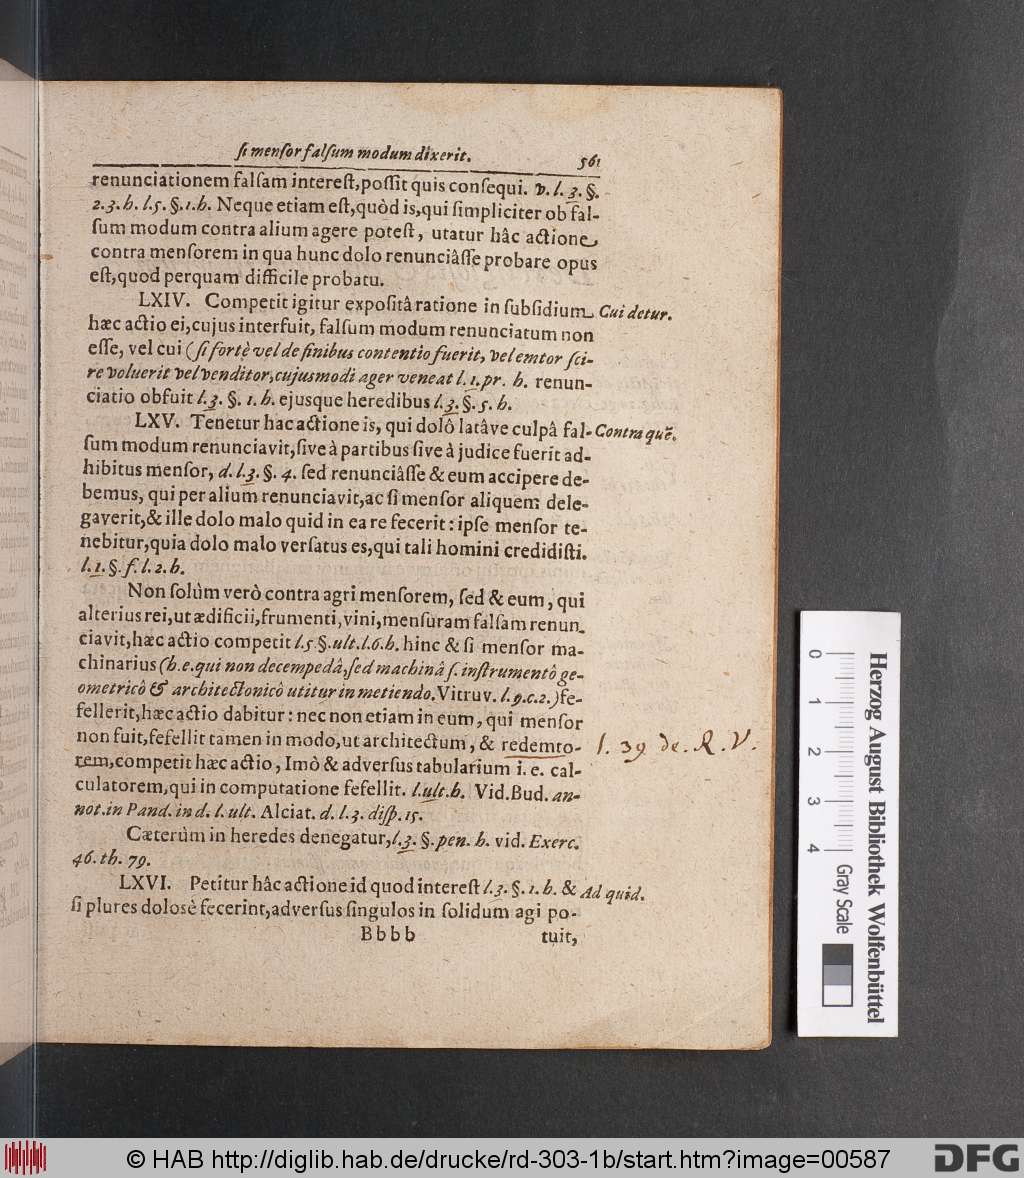 si mensor falsum modum dixerit. 561
renunciationem falsam interest, possit quis consequi. v. l. 3. §.
2. 3. h. l. 5. §. 1. h. Neque etiam est, quòd is, qui simpliciter ob fal-
sum modum contra alium agere potest, utatur hâc actione
contra mensorem in qua hunc dolo renunciâsse probare opus
est, quod perquam difficile probatu.
LXIV. Competit igitur expositâ ratione in subsidium Cui detur.
hæc actio ei, cujus interfuit, falsum modum renunciatum non
esse, vel cui (si fortè vel de finibus contentio fuerit, vel emtor sci-
re voluerit vel venditor, cujusmodi ager veneat l. 1. pr. h. renun-
ciatio obfuit l. 3. §. 1. h. ejusque heredibus l. 3. §. 5. h.
LXV. Tenetur hac actione is, qui dolô latâve culpâ fal- Contra quẽ.
sum modum renunciavit, sive à partibus sive à judice fuerit ad-
hibitus mensor, d. l. 3. §. 4. sed renunciâsse & eum accipere de-
bemus, qui per alium renunciavit, ac si mensor aliquem dele-
gaverit, & ille dolo malo quid in ea re fecerit: ipse mensor te-
nebitur, quia dolo malo versatus es, qui tali homini credidisti.
l. 1. §. f. l. 2. h.
Non solùm verò contra agri mensorem, sed & eum, qui
alterius rei, ut ædificii, frumenti, vini, mensuram falsam renun-
ciavit, hæc actio competit l. 5 §. ult. l. 6. h. hinc & si mensor ma-
chinarius (h. e. qui non decempedâ, sed machinâ s. instrumentô ge-
ometricô & architectonicô utitur in metiendo. Vitruv. l. 9. c. 2.) fe-
fellerit, hæc actio dabitur: nec non etiam in eum, qui mensor
non fuit, fefellit tamen in modo, ut architectum, & redemto- l. 39 de. R. V.
rem, competit hæc actio, Imò & adversus tabularium i. e. cal-
culatorem, qui in computatione fefellit. l. ult. h. Vid. Bud. an-
not. in Pand. in d. l. ult. Alciat. d. l. 3. disp. 15.
Cæterùm in heredes denegatur, l. 3. §. pen. h. vid. Exerc.
46. th. 79.
LXVI. Petitur hâc actione id quod interest l. 3. §. 1. h. & Ad quid.
si plures dolosè fecerint, adversus singulos in solidum agi po-
Bbbb tuit,
0 1 2 3 4
Gray Scale
Herzog August Bibliothek Wolfenbüttel
© HAB http://diglib.hab.de/drucke/rd-303-1b/start.htm?image=00587
DFG